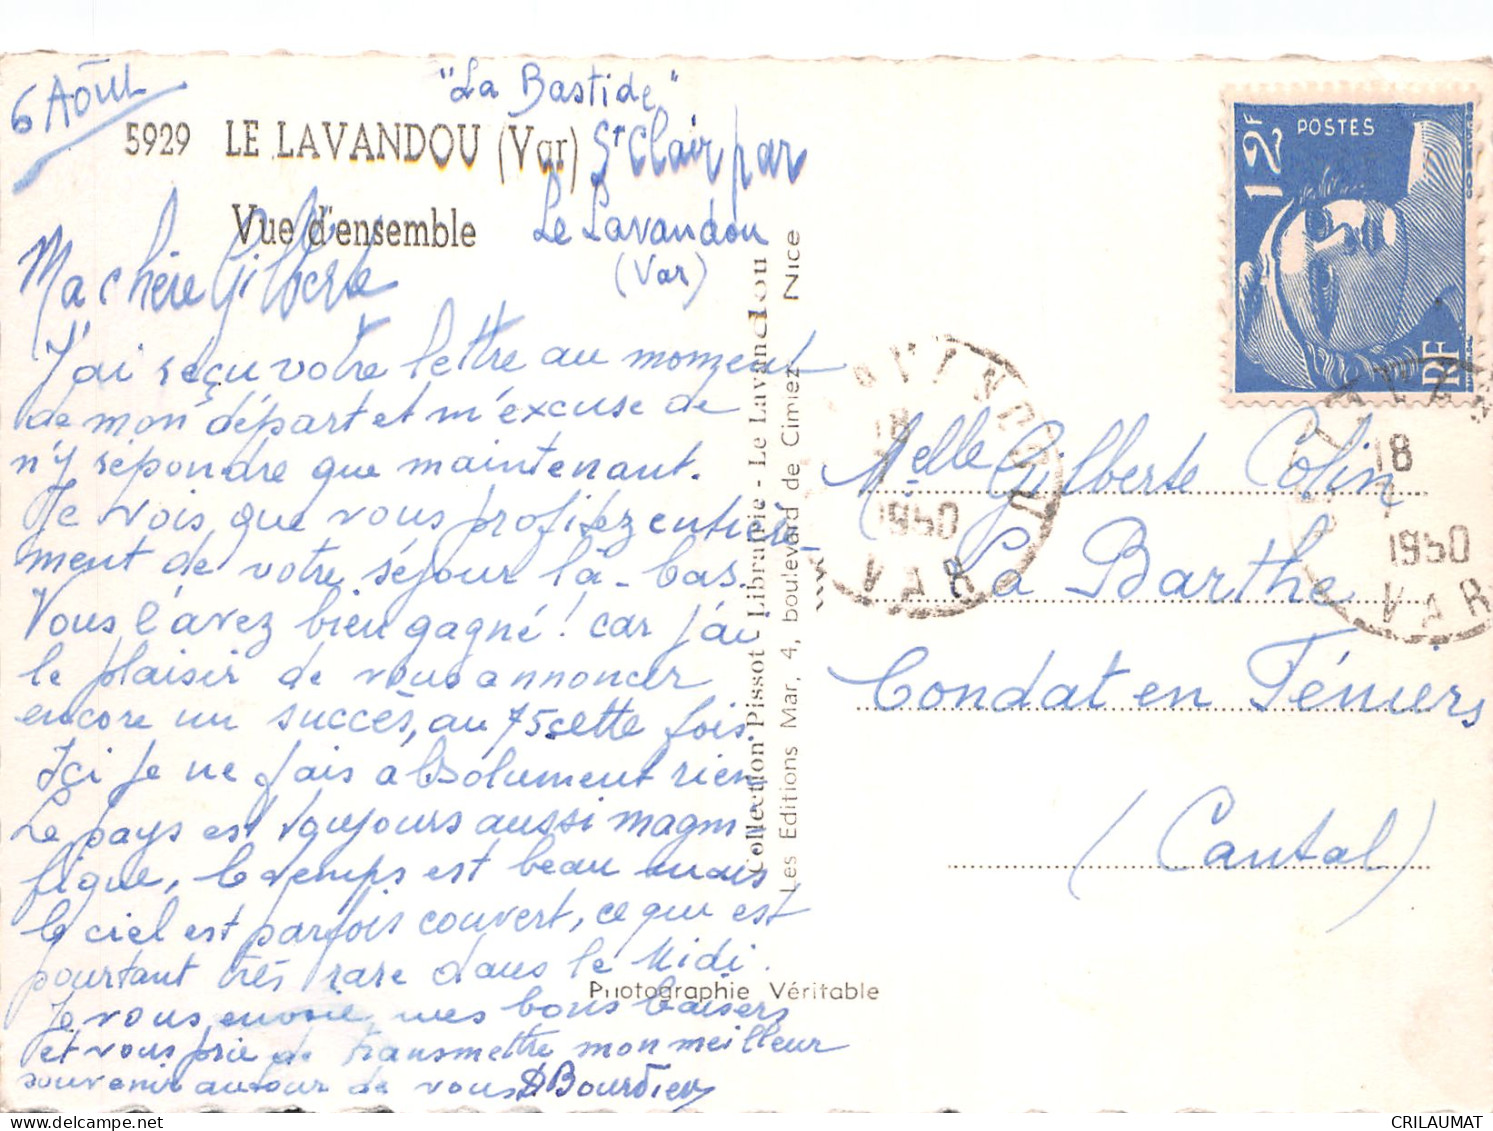 6 Août
"La Bastide"
5929 LE LAVANDOU (Var) St Clair par
Vue d'ensemble Le Lavandou
(Var)
Ma chère Gilberte
J'ai reçu votre lettre au moment
de mon départ et m'excuse de
n'y répondre que maintenant.
Je vois, que vous profitez entière-
ment de votre séjour là-bas.
Vous l'avez bien gagné ! car j'ai
le plaisir de vous annoncer
encore un succès, au 75 cette fois.
Ici je ne fais absolument rien
Le pays est toujours aussi magni-
fique, le temps est beau mais
le ciel est parfois couvert, ce qui est
pourtant très rare dans le Midi.
Je vous envoie mes bons baisers
et vous prie de transmettre mon meilleur
souvenir autour de vous Bourdier
Collection Pissot - Librairie - Le Lavandou
Les Editions Mar, 4, boulevard de Cimiez, Nice
Photographie Véritable
12F
POSTES
RF
18
1950
VAR
18
1950
VAR
Melle Gilberte Colin
La Barthe
Condat en Féniers
(Cantal)
CRILAUMAT